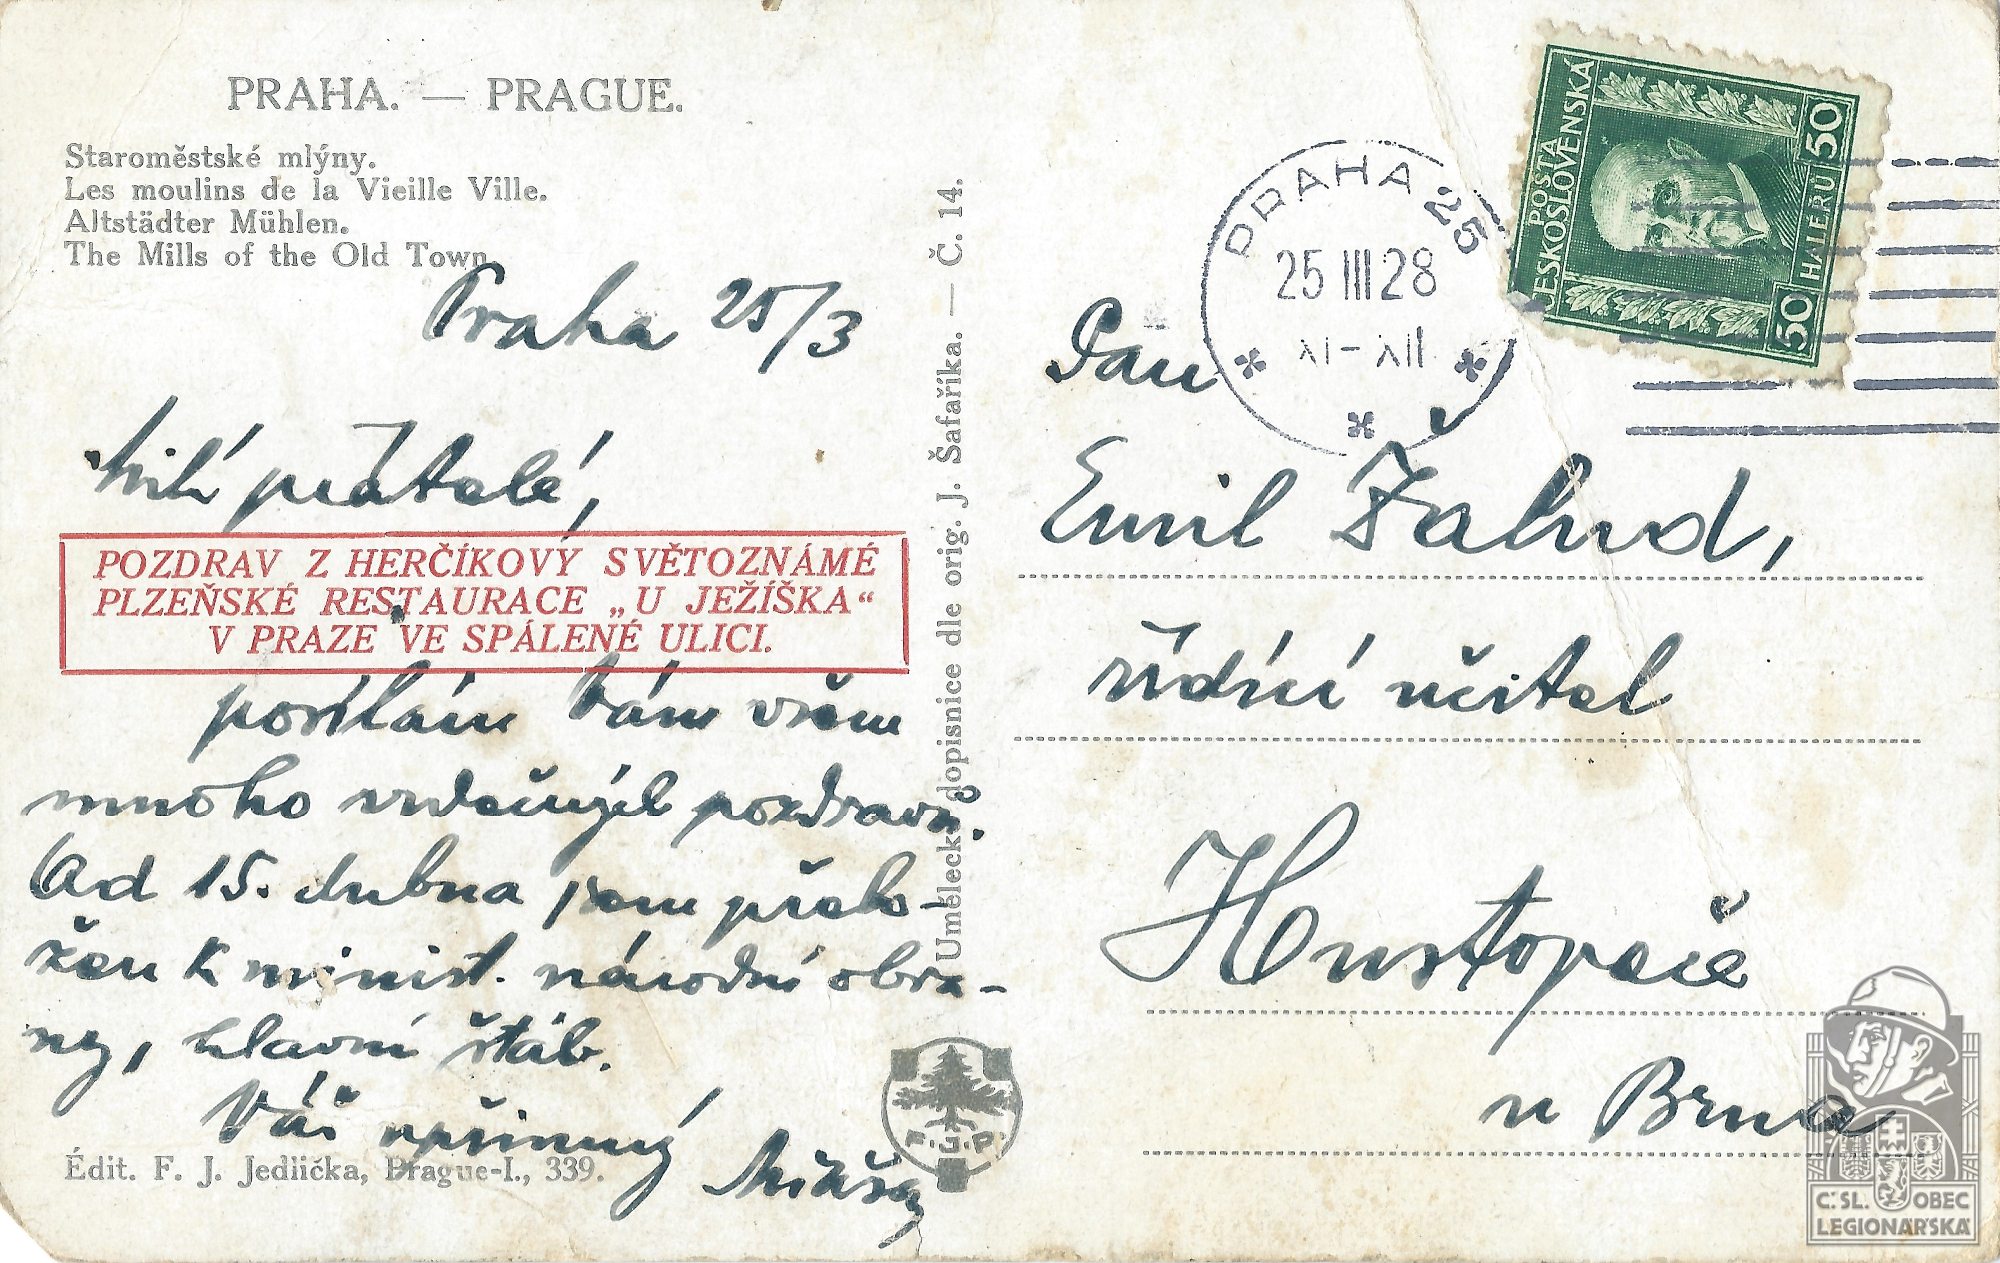 PRAHA. — PRAGUE.
Staroměstské mlýny.
Les moulins de la Vieille Ville.
Altstädter Mühlen.
The Mills of the Old Town.
Praha 25/3
Milí přátelé,
POZDRAV Z HERČÍKOVY SVĚTOZNÁMÉ
PLZEŇSKÉ RESTAURACE „U JEŽÍŠKA“
V PRAZE VE SPÁLENÉ ULICI.
posílám Vám všem
mnoho srdečných pozdravů.
Od 15. dubna jsem přelo-
žen k minist. národní obra-
ny, hlavní štáb.
Váš upřímný
Édit. F. J. Jedlička, Prague-I., 339.
Umělecké dopisnice dle orig. J. Šafaříka. — Č. 14.
F. J. P.
PRAHA 25
25 III 28
XI-XII
POŠTA
ČESKOSLOVENSKÁ
50 HALÉŘŮ 50
Pan
Emil Žahud,
řídící učitel
Hustopeče
u Brna
Č.SL. OBEC
LEGIONÁŘSKÁ